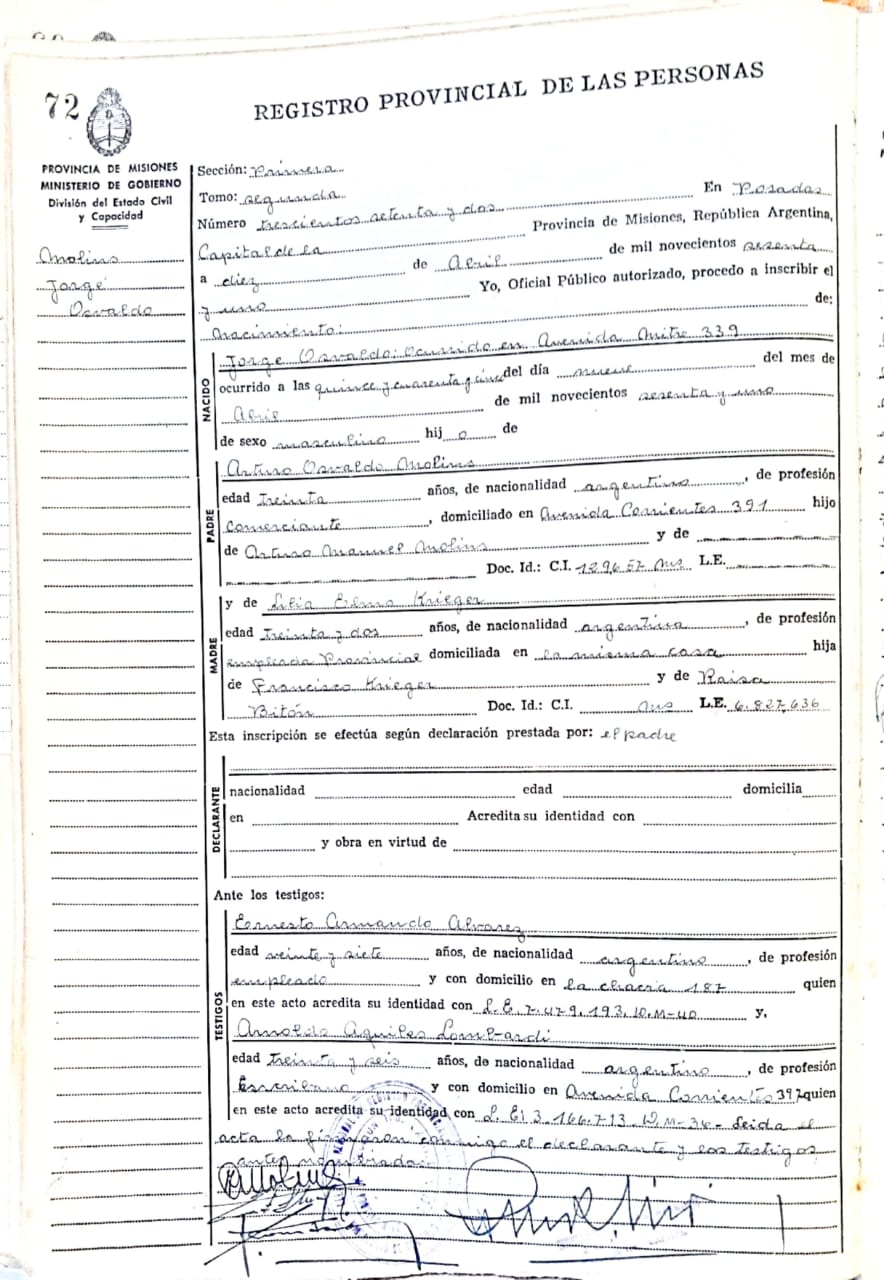 72
REGISTRO PROVINCIAL DE LAS PERSONAS
PROVINCIA DE MISIONES
MINISTERIO DE GOBIERNO
División del Estado Civil
y Capacidad
Molins
Jorge
Osvaldo
Sección: Primera
Tomo: segunda
Número trescientos setenta y dos En Posadas
Capital de la Provincia de Misiones, República Argentina,
a diez de Abril de mil novecientos sesenta
y uno Yo, Oficial Público autorizado, procedo a inscribir el
nacimiento: de:
NACIDO
Jorge Osvaldo: Ocurrido en Avenida Mitre 339
ocurrido a las quince y cuarenta y cinco del día nueve del mes de
Abril de mil novecientos sesenta y uno
de sexo masculino hij o de
PADRE
Arturo Osvaldo Molins
edad treinta años, de nacionalidad argentino, de profesión
comerciante, domiciliado en Avenida Corrientes 391 hijo
de Arturo Manuel Molins y de
Doc. Id.: C.I. 129657 Mis L.E.
MADRE
y de Lilia Elma Krieger
edad treinta y dos años, de nacionalidad argentina, de profesión
empleada Provincial domiciliada en la misma casa hija
de Francisco Krieger y de Raisa
Bitón Doc. Id.: C.I. Mis L.E. 6.827.636
Esta inscripción se efectúa según declaración prestada por: el padre
DECLARANTE
nacionalidad edad domicilia
en Acredita su identidad con
y obra en virtud de
Ante los testigos:
TESTIGOS
Ernesto Armando Alvarez
edad veinte y siete años, de nacionalidad argentino, de profesión
empleado y con domicilio en la chacra 187 quien
en este acto acredita su identidad con L.E. 7.479.193.D.M-40 y,
Arnoldo Aquiles Lombardi
edad treinta y seis años, de nacionalidad argentino, de profesión
Escribano y con domicilio en Avenida Corrientes 397 quien
en este acto acredita su identidad con L.E. 3.166.713.D.M-34- Leida el
acta la firmaron conmigo el declarante y los testigos